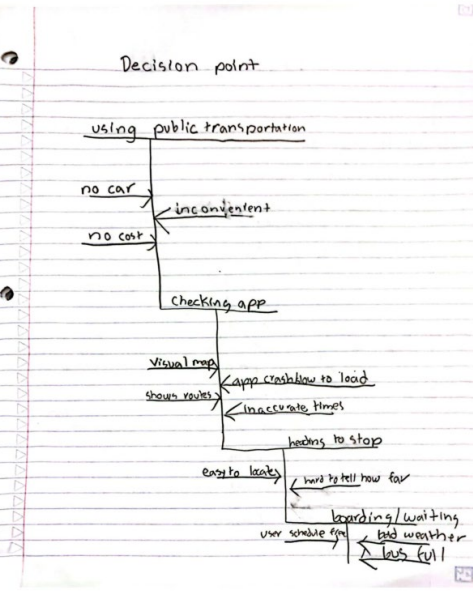 Decision point
using public transportation
no car
inconvenient
no cost
Checking app
Visual map
app crash/slow to load
shows routes
inaccurate times
heading to stop
easy to locate
hard to tell how far
boarding/waiting
user schedule free
bad weather
bus full